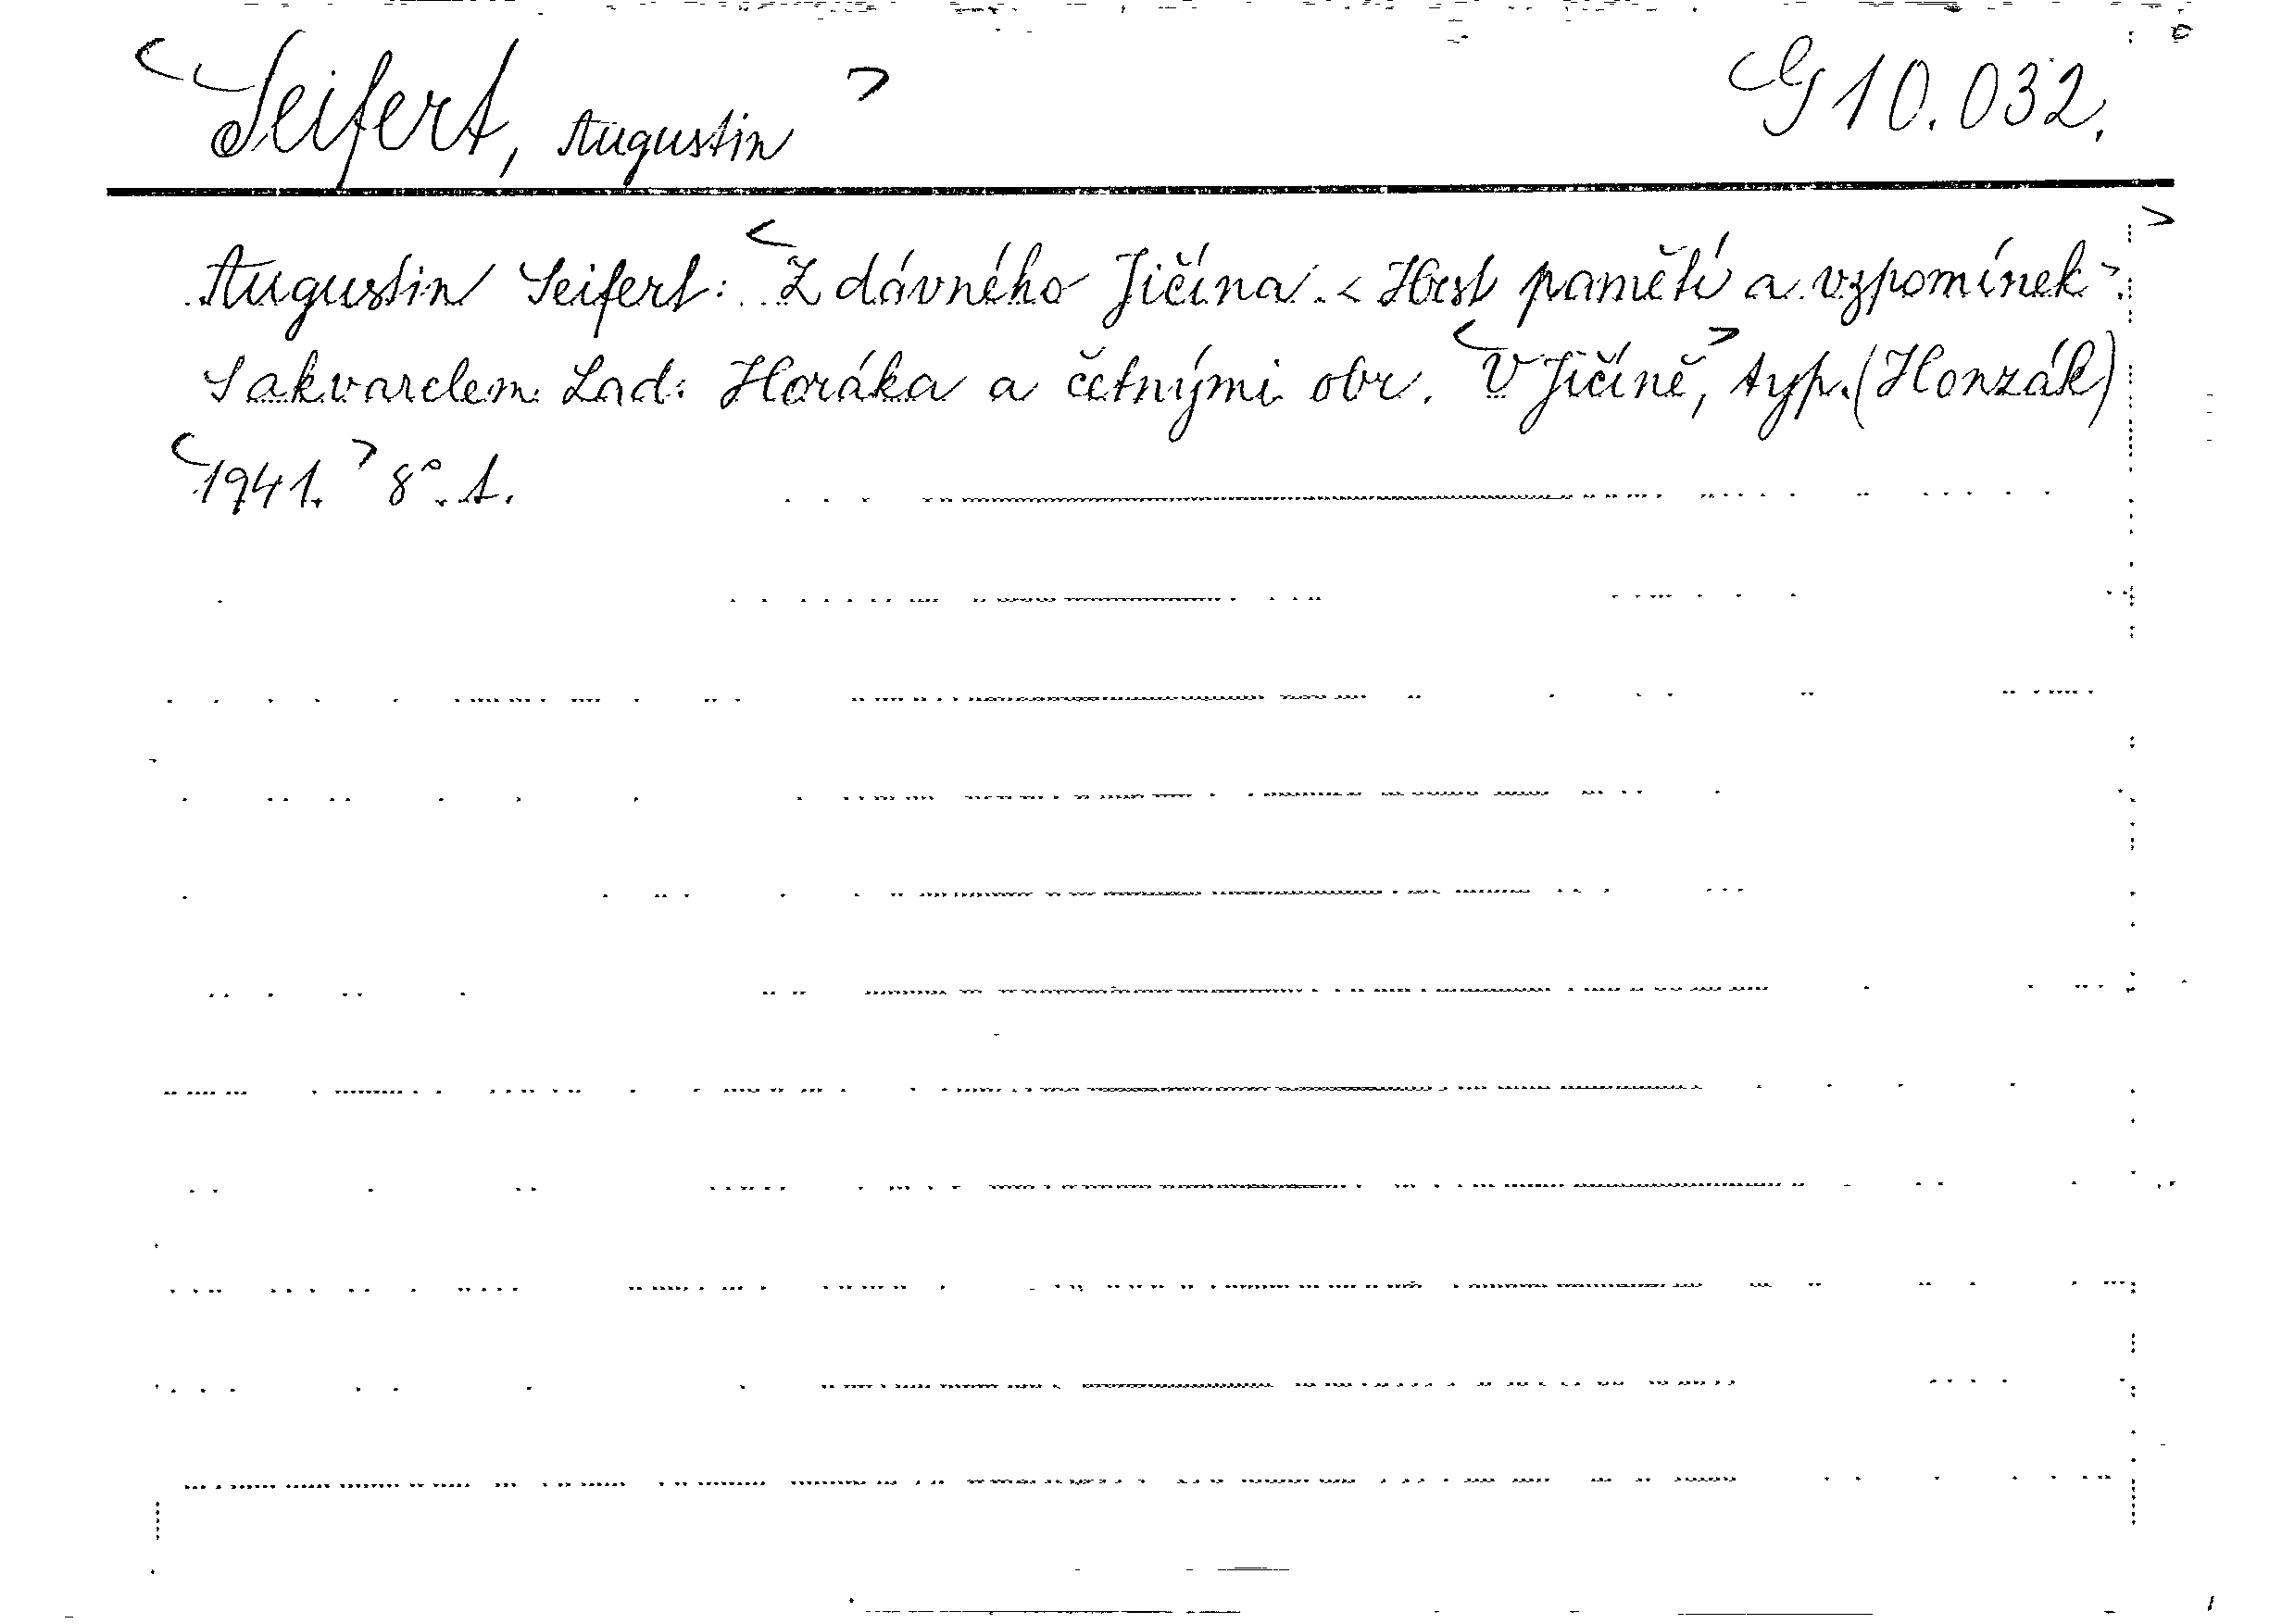 <Seifert, Augustin> G 10.032.
Augustin Seifert: <Z dávného Jičína. < Hrst pamětí a vzpomínek>.>
S akvarelem Lad. Horáka a četnými obr. <V Jičíně,> typ. (Honzák)
<1941.> 8°. 1.